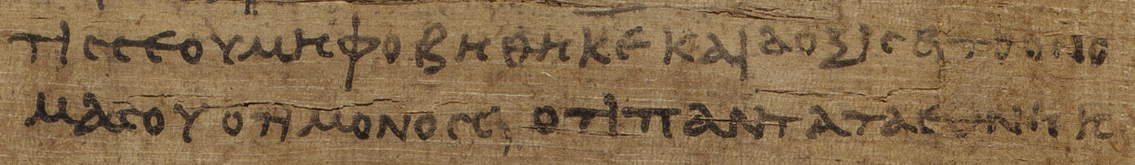 ΤΙϹϹΕΟΥΜΗΦΟΒΗΘΗΚΕΚΑΙΔΟΞΙϹΗΤΟΟΝΟ
ΜΑϹΟΥΟΗΜΟΝΟϹΕΙ ΟΤΙΠΑΝΤΑΤΑΕΘΝΗΗ